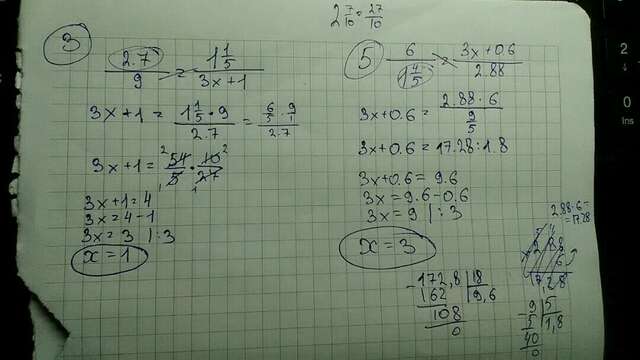 2 7/10 = 27/10
3
2.7/9 = 1 1/5 / 3x+1
3x+1 = 1 1/5 · 9 / 2.7 = 6/5 · 9/1 / 2.7
3x+1 = 54/5 · 10/27
2 2
1 1
3x+1=4
3x=4-1
3x=3 |:3
x=1
5
6 / 1 4/5 = 3x+0.6 / 2.88
3x+0.6 = 2.88·6 / 9/5
3x+0.6=17.28:1.8
3x+0.6=9.6
3x=9.6-0.6
3x=9 |:3
x=3
2.88·6=
=17.28
17,28
-172,8 |18
162 9,6
108
0
-9 |5
5 1,8
40
0
2
0
Ins